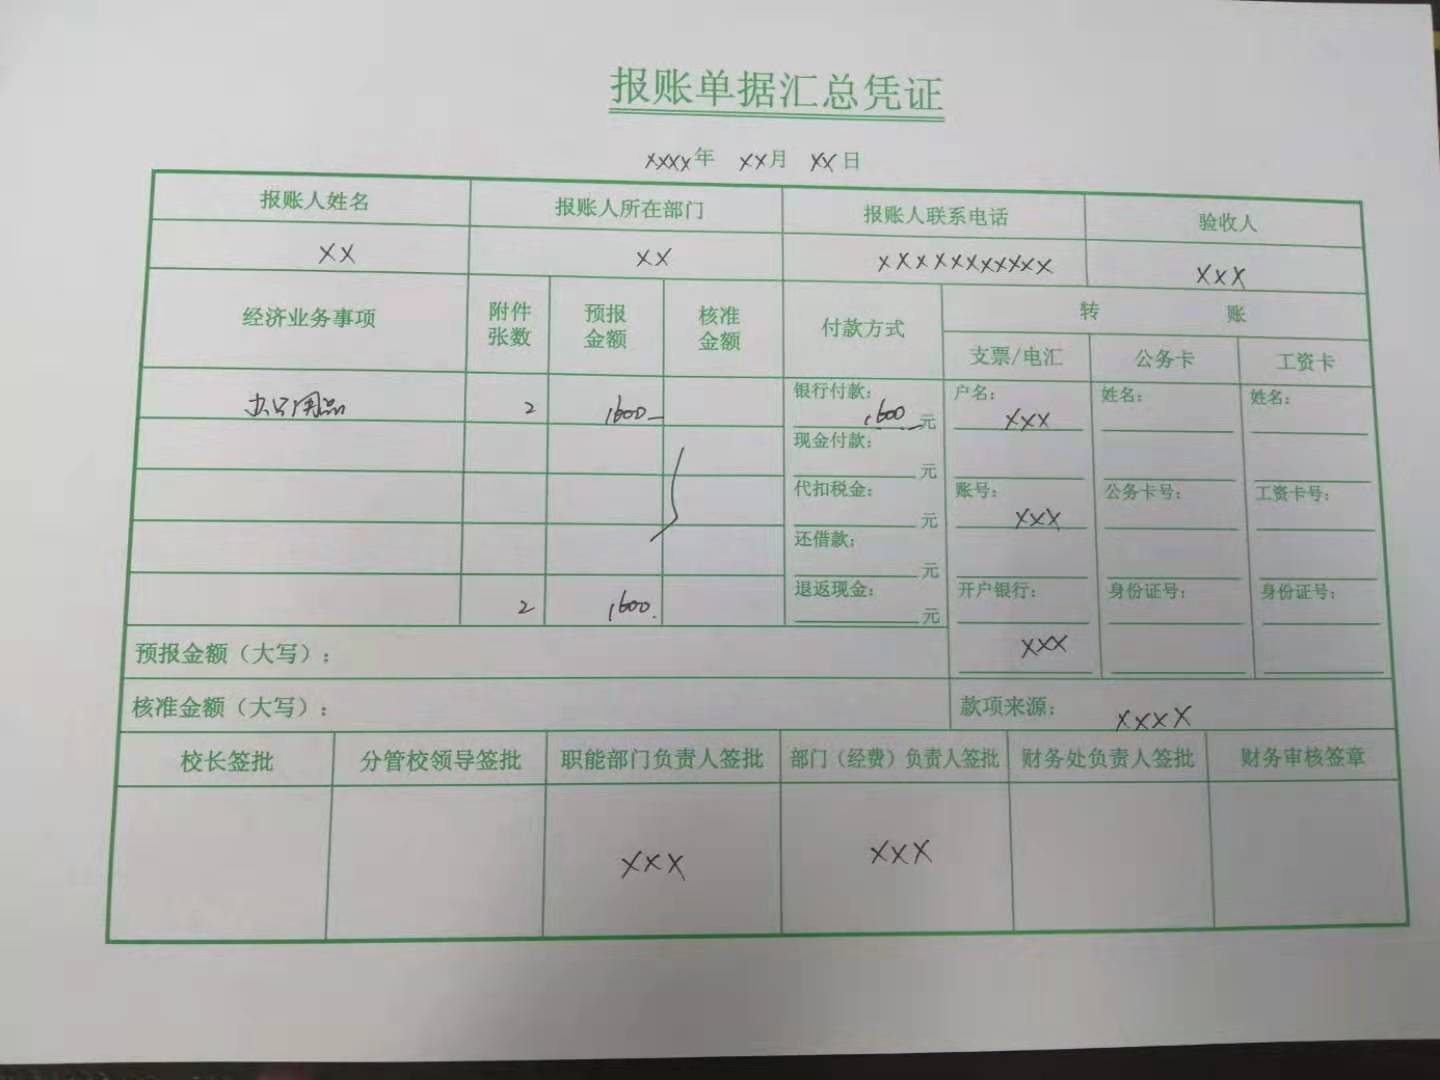 报账单据汇总凭证
xxxx年 xx月 xx日
报账人姓名 报账人所在部门 报账人联系电话 验收人
xx xx xxxxxxxxxx xxx
经济业务事项 附件张数 预报金额 核准金额 付款方式 转 账
支票/电汇 公务卡 工资卡
办公用品 2 1600 银行付款: 1600 元 户名: xxx 姓名: 姓名:
现金付款: 元
代扣税金: 元 账号: xxx 公务卡号: 工资卡号:
还借款: 元
2 1600. 退返现金: 元 开户银行: 身份证号: 身份证号:
预报金额（大写）: xxx
核准金额（大写）: 款项来源: xxxx
校长签批 分管校领导签批 职能部门负责人签批 部门（经费）负责人签批 财务处负责人签批 财务审核签章
xxx xxx